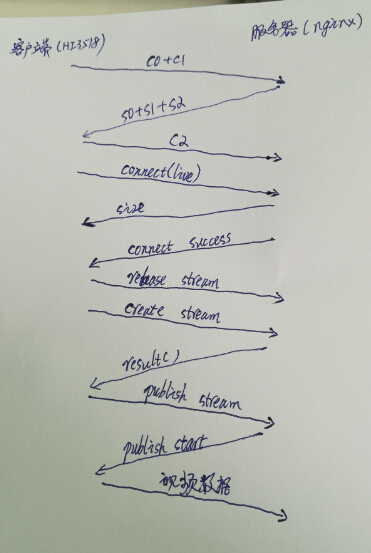 客户端(HI3518) 服务器(nginx)
C0+C1
S0+S1+S2
C2
connect(live)
size
connect success
release stream
create stream
result()
publish stream
publish start
视频数据